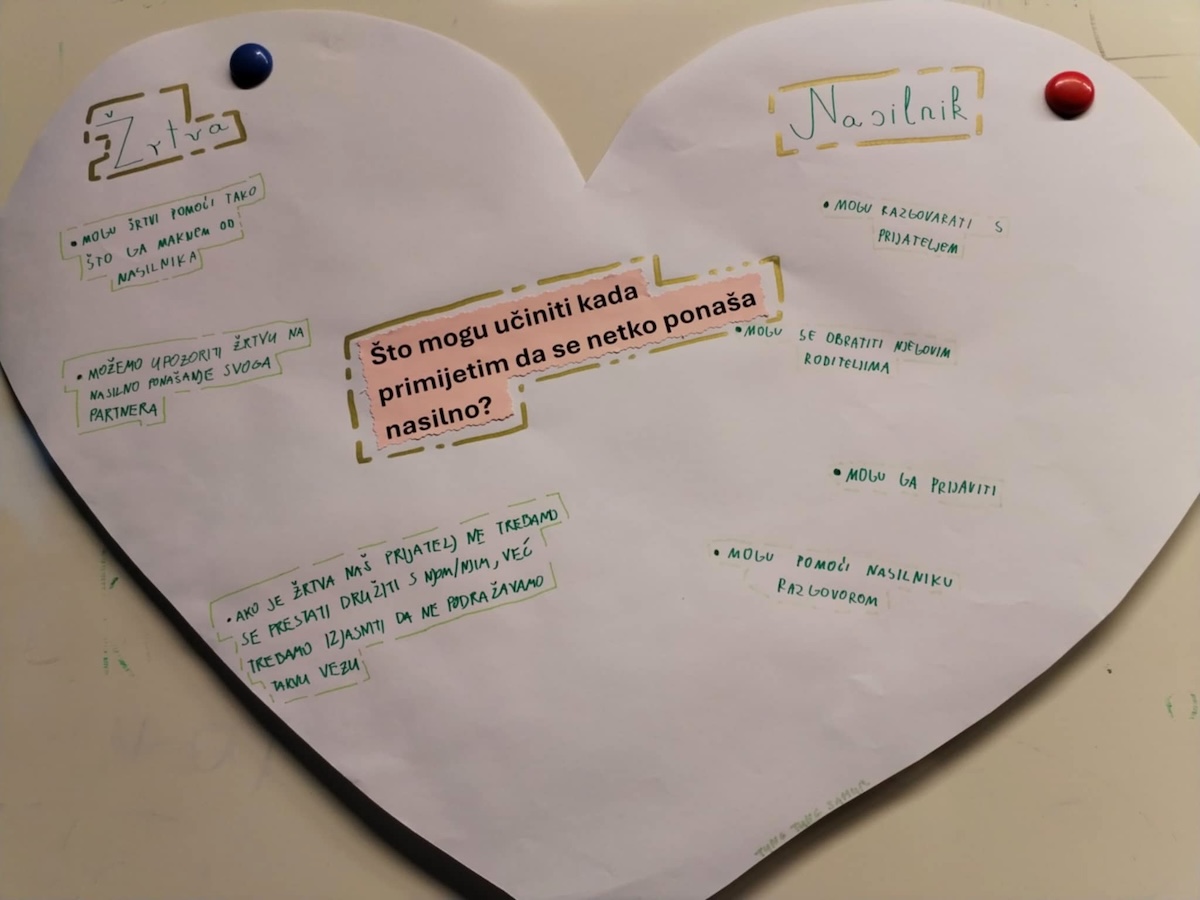 Žrtva
• MOGU ŠRTVI POMOĆI TAKO
ŠTO GA MAKNEM OD
NASILNIKA
• MOŽEMO UPOZORITI ŽRTVU NA
NASILNO PONAŠANJE SVOGA
PARTNERA
• AKO JE ŽRTVA NAŠ PRIJATELJ NE TREBAMO
SE PRESTATI DRUŽITI S NJOM/NJIM, VEĆ
TREBAMO IZJASNITI DA NE PODRAŽAVAMO
TAKVU VEZU
Što mogu učiniti kada
primijetim da se netko ponaša
nasilno?
Nasilnik
• MOGU RAZGOVARATI S
PRIJATELJEM
• MOGU SE OBRATITI NJEGOVIM
RODITELJIMA
• MOGU GA PRIJAVITI
• MOGU POMOĆI NASILNIKU
RAZGOVOROM